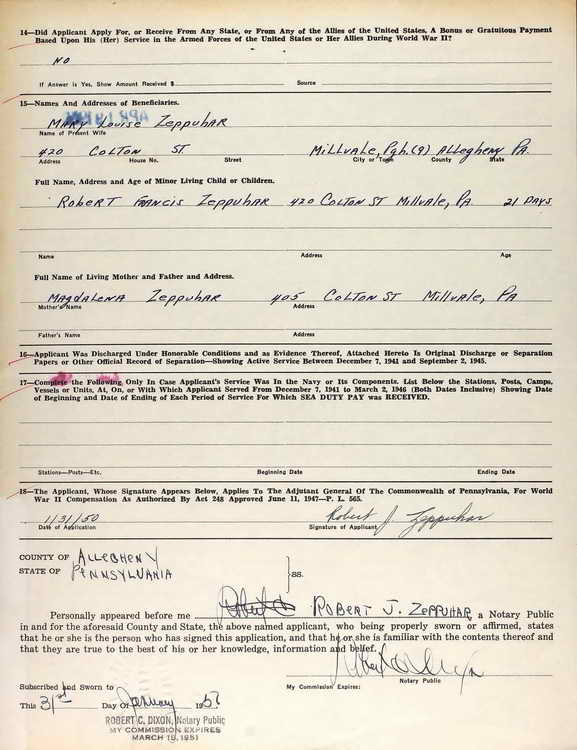 14—Did Applicant Apply For, or Receive From Any State, or From Any of the Allies of the United States, A Bonus or Gratuitous Payment
Based Upon His (Her) Service in the Armed Forces of the United States or Her Allies During World War II?
NO
If Answer is Yes, Show Amount Received $ Source
15—Names And Addresses of Beneficiaries.
MARY Louise Zeppuhar
Name of Present Wife
420 COLTON ST. Millvale, Pgh. (9) Allegheny Pa.
Address House No. Street City or Town County State
Full Name, Address and Age of Minor Living Child or Children.
Robert Francis Zeppuhar 420 Colton St Millvale, Pa 21 Days
Name Address Age
Full Name of Living Mother and Father and Address.
Magdalena Zeppuhar 405 Colton St Millvale, Pa
Mother's Name Address
Father's Name Address
16—Applicant Was Discharged Under Honorable Conditions and as Evidence Thereof, Attached Hereto Is Original Discharge or Separation
Papers or Other Official Record of Separation—Showing Active Service Between December 7, 1941 and September 2, 1945.
17—Complete the Following Only In Case Applicant's Service Was In the Navy or Its Components. List Below the Stations, Posts, Camps,
Vessels or Units, At, On, or With Which Applicant Served From December 7, 1941 to March 2, 1946 (Both Dates Inclusive) Showing Date
of Beginning and Date of Ending of Each Period of Service For Which SEA DUTY PAY was RECEIVED.
Stations—Posts—Etc. Beginning Date Ending Date
18—The Applicant, Whose Signature Appears Below, Applies To The Adjutant General Of The Commonwealth of Pennsylvania, For World
War II Compensation As Authorized By Act 248 Approved June 11, 1947—P. L. 565.
1/31/50 Robert J. Zeppuhar
Date of Application Signature of Applicant
COUNTY OF ALLEGHENY
STATE OF PENNSYLVANIA
SS.
Personally appeared before me ROBERT J. ZEPPUHAR, a Notary Public
in and for the aforesaid County and State, the above named applicant, who being properly sworn or affirmed, states
that he or she is the person who has signed this application, and that he or she is familiar with the contents thereof and
that they are true to the best of his or her knowledge, information and belief.
Notary Public
Subscribed and Sworn to My Commission Expires:
This 31st Day Of January
ROBERT C. DIXON, Notary Public
MY COMMISSION EXPIRES
MARCH 19, 1951